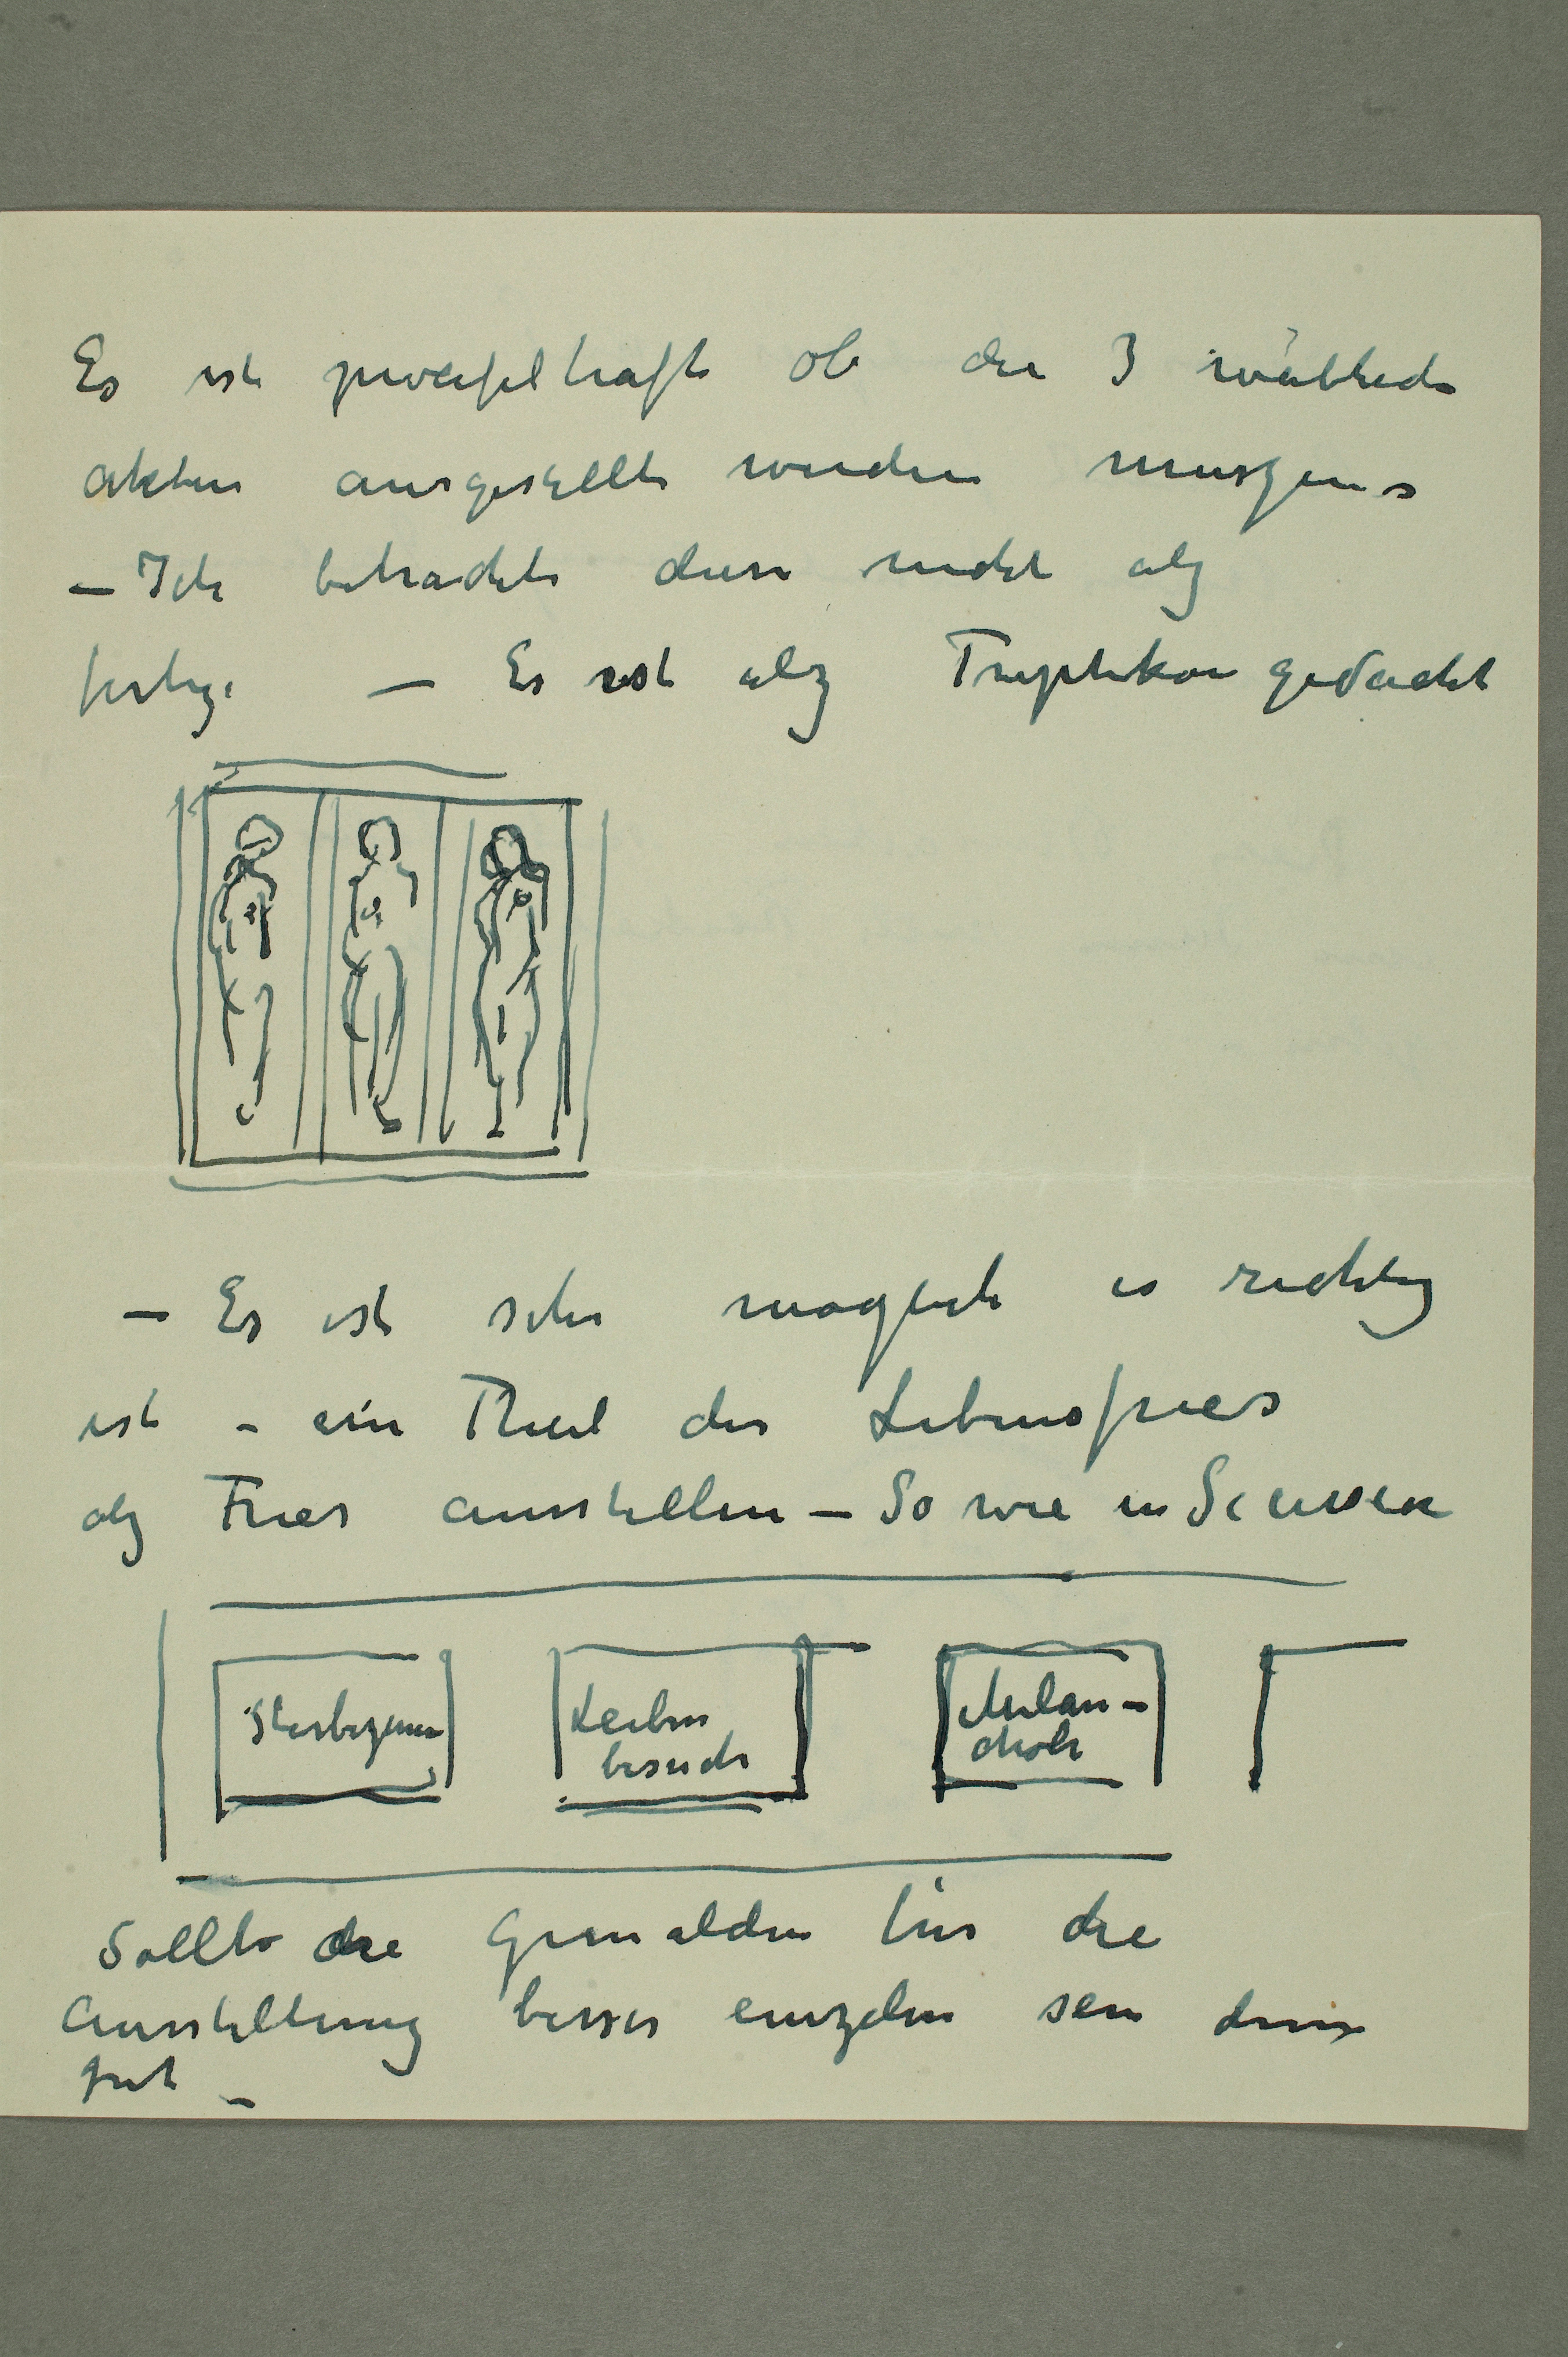 Es ist zweifelhaft ob die 3 weiblich
akten ausgestellt werden muszen
– Ich betrachte diese nicht alz
fertige – Es ist alz Tryptikon gedacht
– Es ist sehr moglich es richtig
ist – ein Theil des Lebensfries
alz Fries ausstellen – So wie in
Sterbezimmer
Leichen
besuch
Melan-
choli
Sollte die Gemalden für die
Ausstellung besser einzeln sein dann
gut –